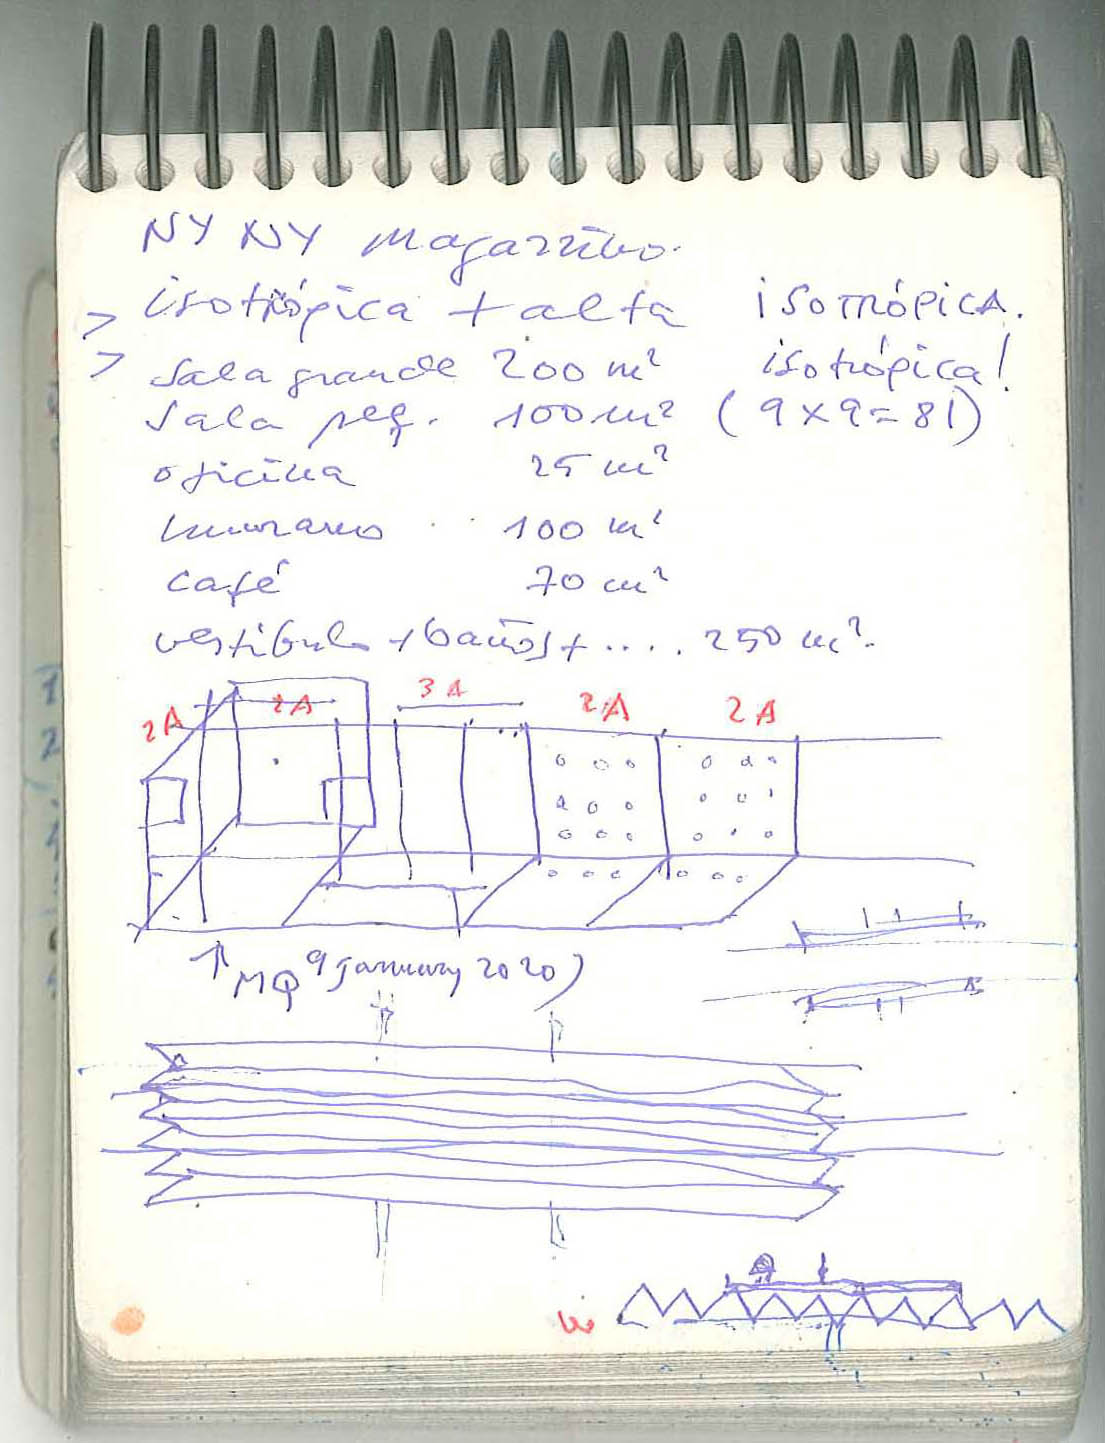 NY NY Magazzino.
> isotrópica + alta isotrópica.
> Sala grande 200 m² isotrópica!
Sala peq. 100 m² (9x9=81)
oficina 25 m²
100 m²
café 70 m²
vestíbulo + baños + .... 250 m².
2A 2A 3A 2A 2A
MQ 9 january 2020)